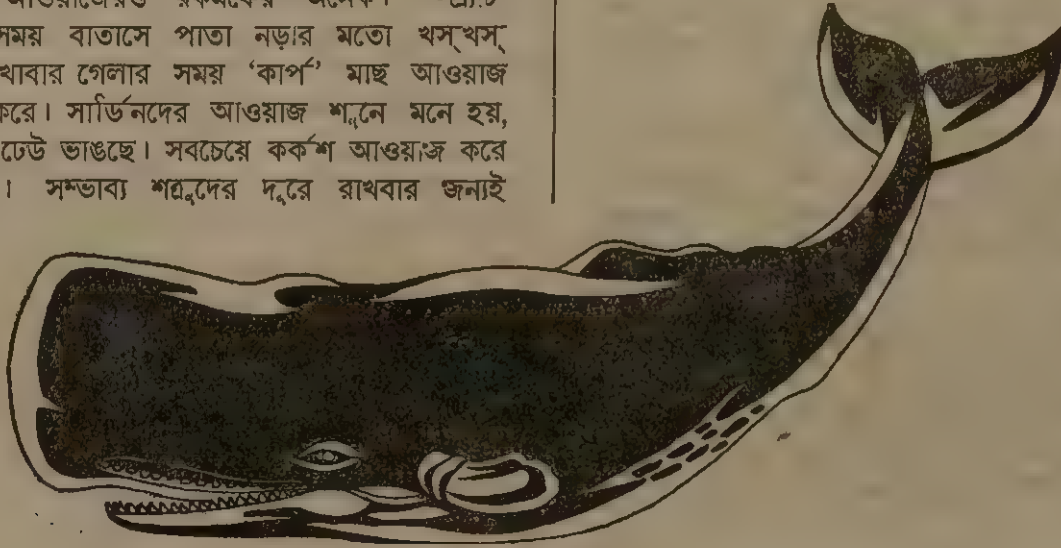 আওয়াজেরও রকমফের অনেক।
সময় বাতাসে পাতা নড়ার মতো খস্‌খস্‌
খাবার গেলার সময় ‘কার্প’ মাছ আওয়াজ
করে। সার্ডিনদের আওয়াজ শুনে মনে হয়,
ঢেউ ভাঙছে। সবচেয়ে কর্কশ আওয়াজ করে
। সম্ভাব্য শত্রুদের দূরে রাখবার জন্যই